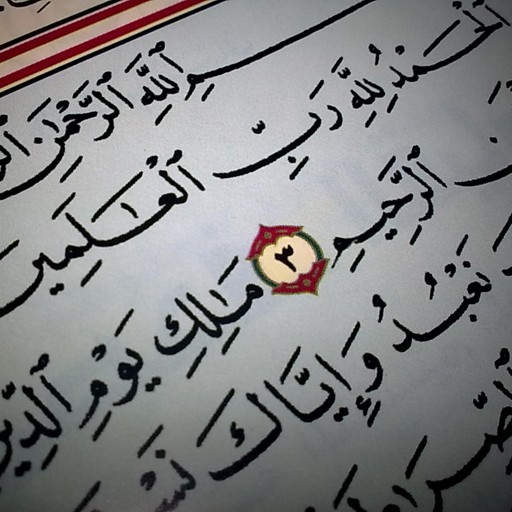 سْمِ ٱللَّهِ ٱلرَّحْمَٰنِ
ٱلْحَمْدُ لِلَّهِ رَبِّ ٱلْعَٰلَمِينَ
ٱلرَّحِيمِ ٣ مَٰلِكِ يَوْمِ ٱلدِّينِ
نَعْبُدُ وَإِيَّاكَ